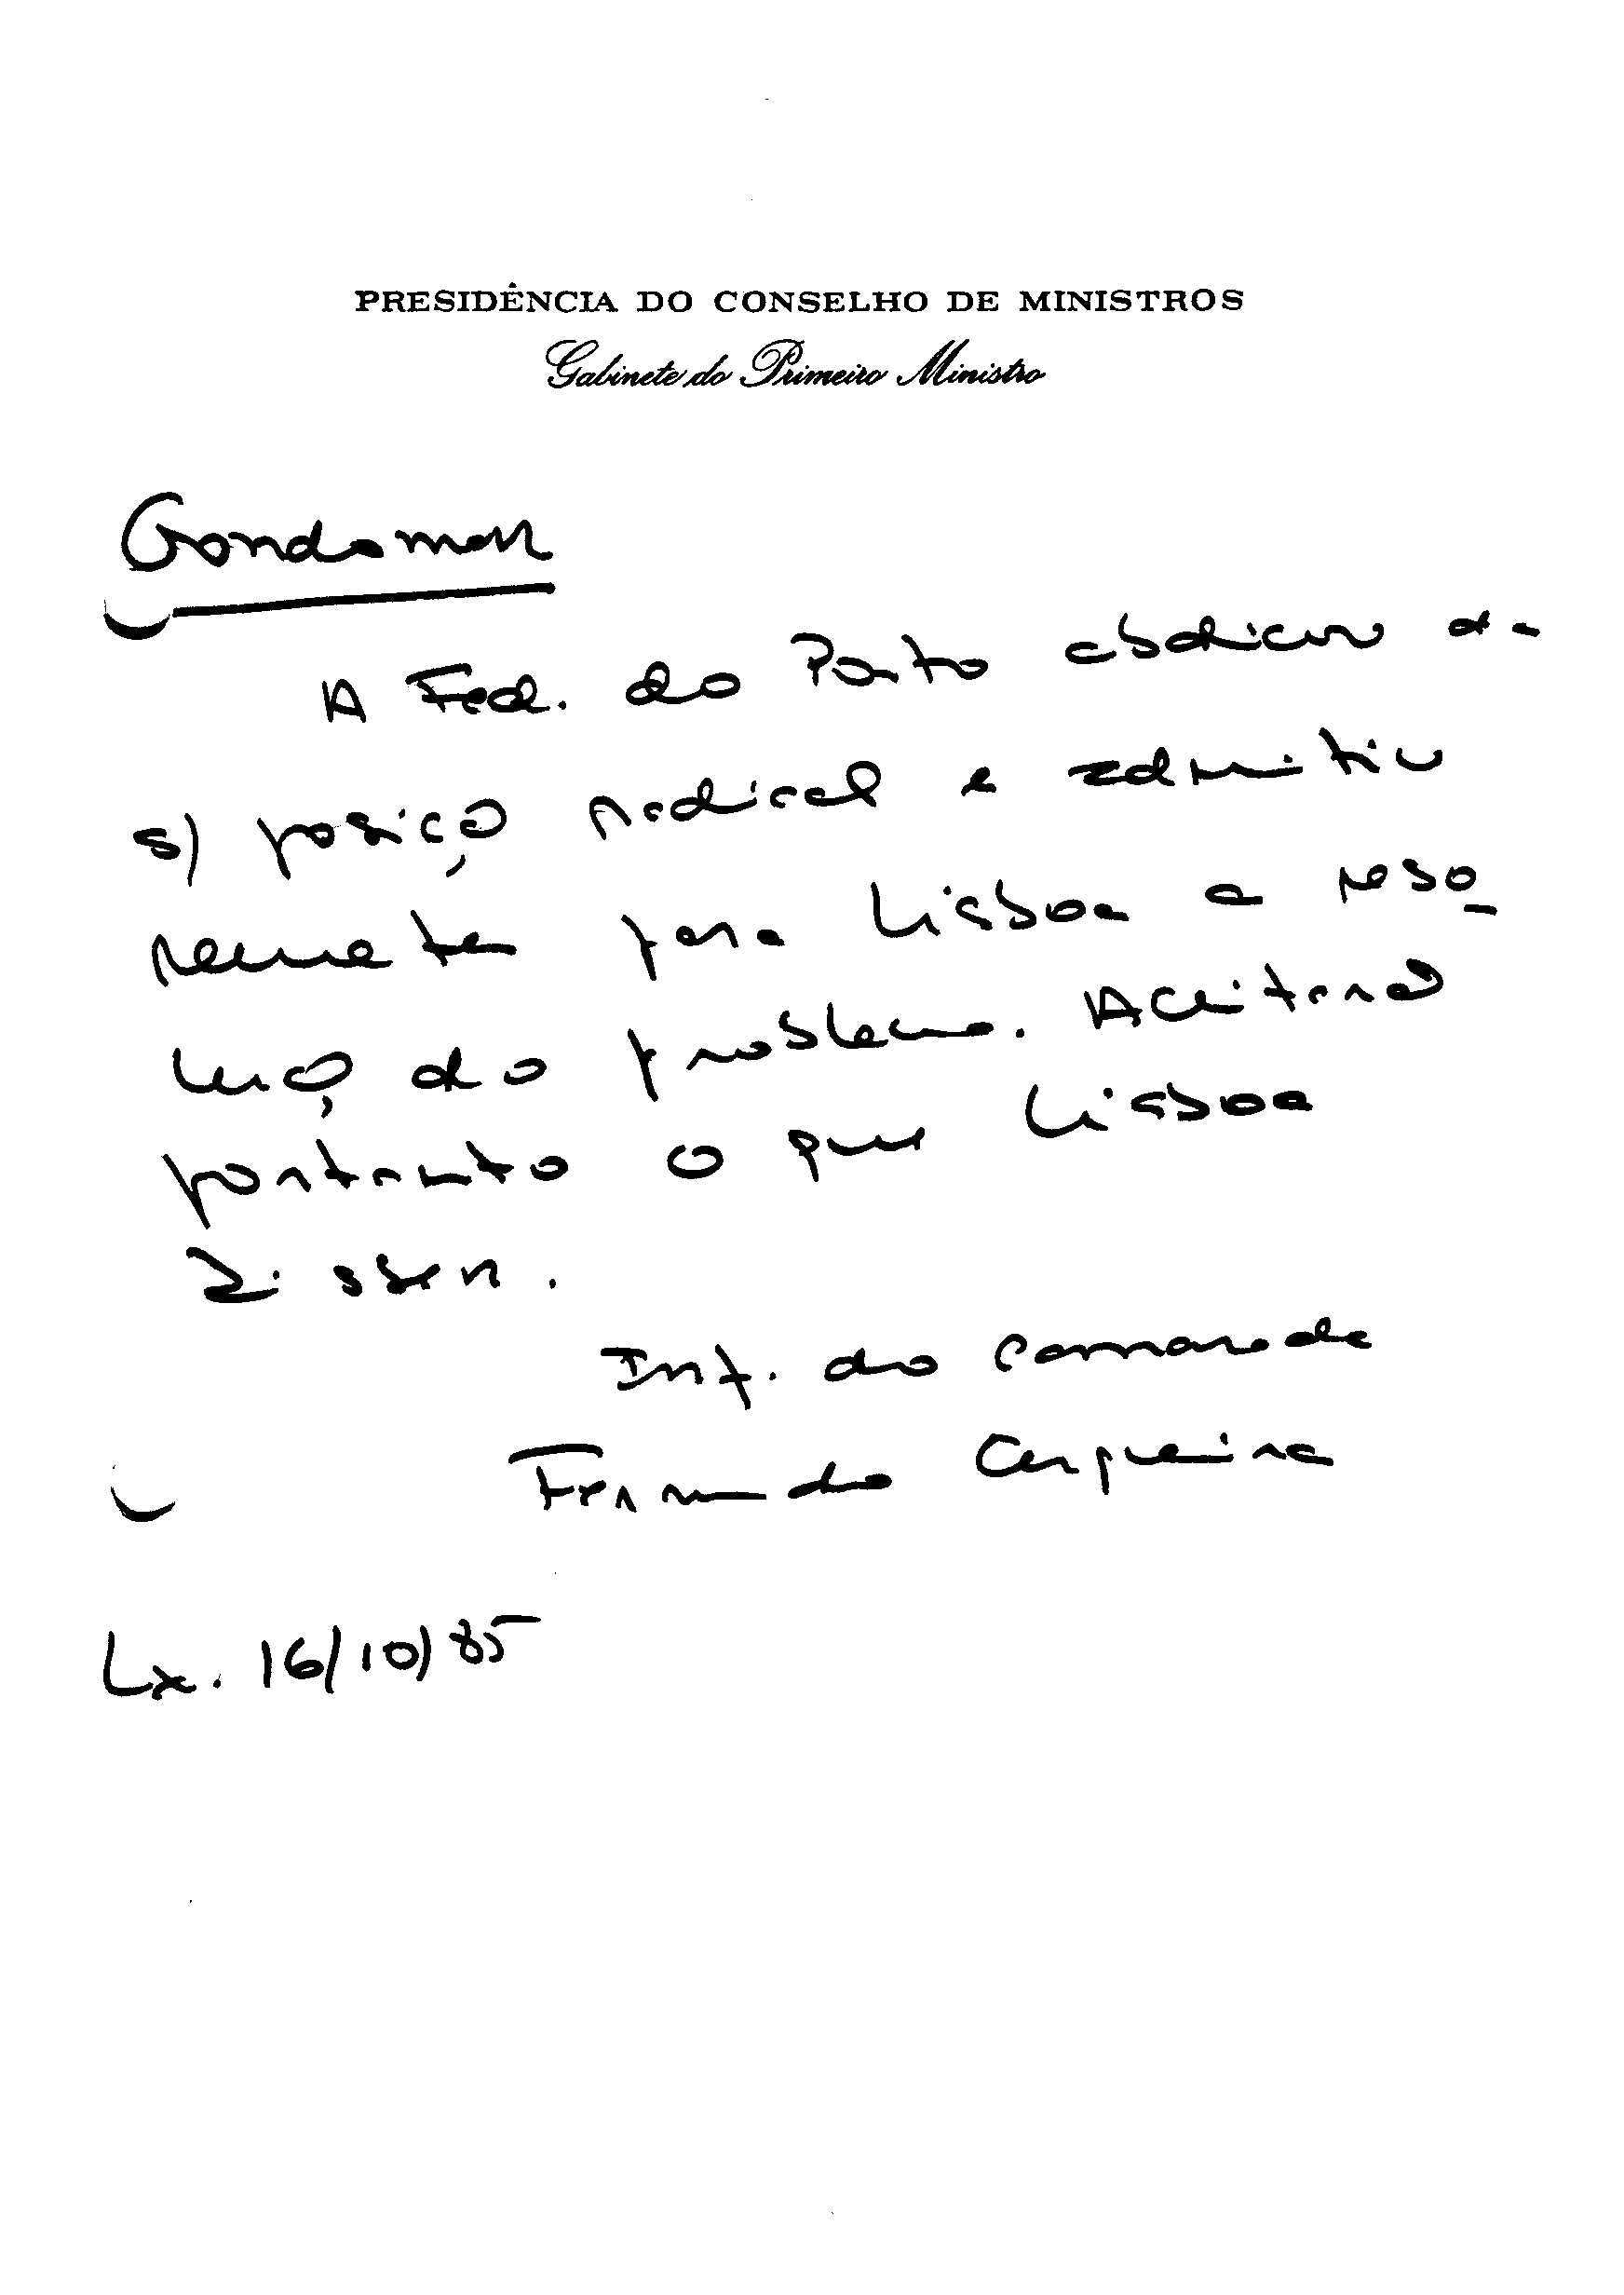 PRESIDÊNCIA DO CONSELHO DE MINISTROS
Gabinete do Primeiro Ministro
Gondomar
A Fed. do Porto abdicou da
s/ posição radical e admitiu
remeter para Lisboa a reso_
lução do problema. Aceitará
portanto o que Lisboa
disser.
Inf. do camarada
Fernando Cerqueira
Lx. 16/10/85